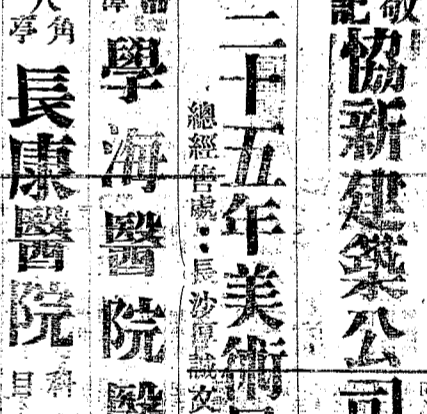 敬記
協新建築公司
二十五年美術
總經售處：長沙
學海醫院醫
八角亭
長康醫院
科目